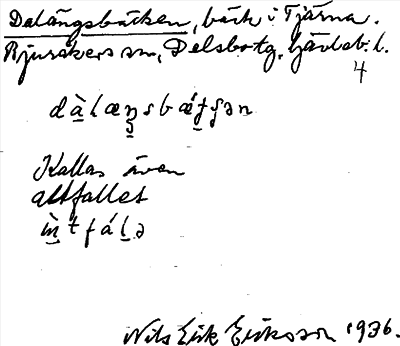 Dalängsbäcken, bäck i Tjärna.
Bjuråkers sn, Delsbo tg, Gävleb. l.
4
dàlæŋsbætʃən
Kallas även
altfallet
fála
Nils Erik Eriksson 1936.